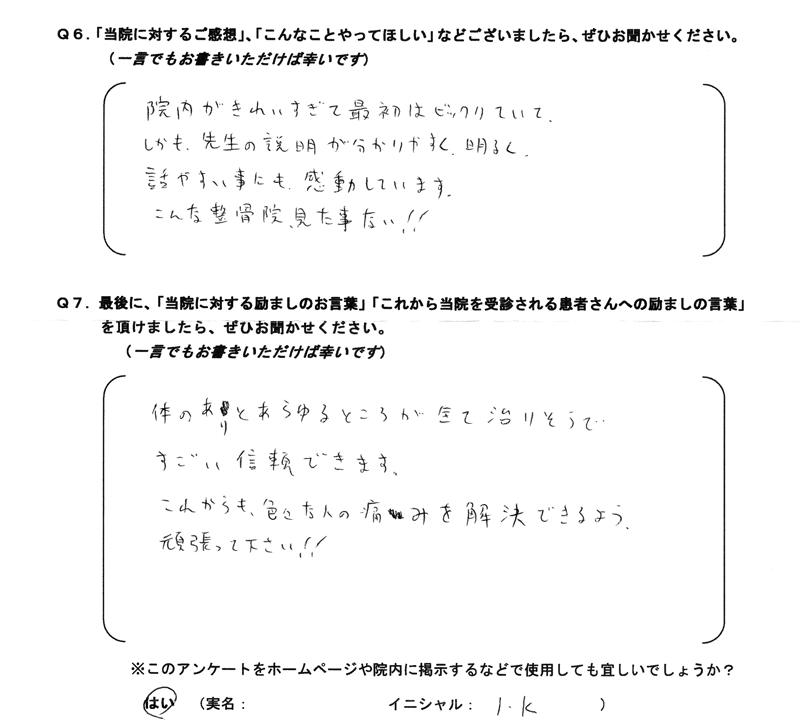 Ｑ６．「当院に対するご感想」、「こんなことやってほしい」などございましたら、ぜひお聞かせください。
（一言でもお書きいただけば幸いです）
院内がきれいすぎて最初はビックリていて、
しかも、先生の説明が分かりやすく、明るく、
話やすい事にも、感動しています。
こんな整骨院、見た事ない!!
Ｑ７．最後に、「当院に対する励ましのお言葉」「これから当院を受診される患者さんへの励ましの言葉」
を頂けましたら、ぜひお聞かせください。
（一言でもお書きいただけば幸いです）
体のありとあらゆるところが全て治りそうで
すごい信頼できます。
これからも、色々な人の痛みを解決できるよう、
頑張って下さい!!
※このアンケートをホームページや院内に掲示するなどで使用しても宜しいでしょうか？
はい （実名： イニシャル： I.K ）